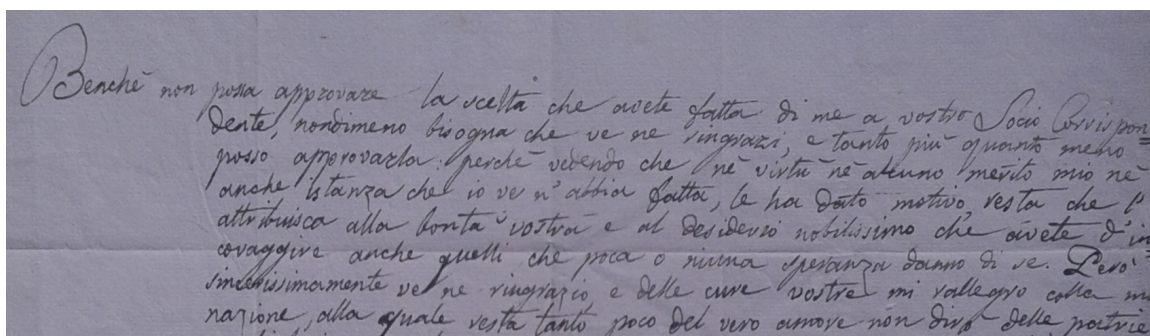 Benchè non possa approvare la scelta che avete fatta di me a vostro Socio Corrispon=
dente, nondimeno bisogna che ve ne ringrazi, e tanto più quanto meno
posso approvarla: perchè vedendo che nè virtù nè alcuno merito mio nè
anche istanza che io ve n'abbia fatta, le ha dato motivo, resta che l'
attribuisca alla bontà vostra e al desiderio nobilissimo ch' avete d'in
coraggire anche quelli che poca o niuna speranza danno di se. Però
sincerissimamente ve ne ringrazio, e delle cure vostre mi rallegro colla
nazione, alla quale resta tanto poco del vero amore non dirò delle patrie